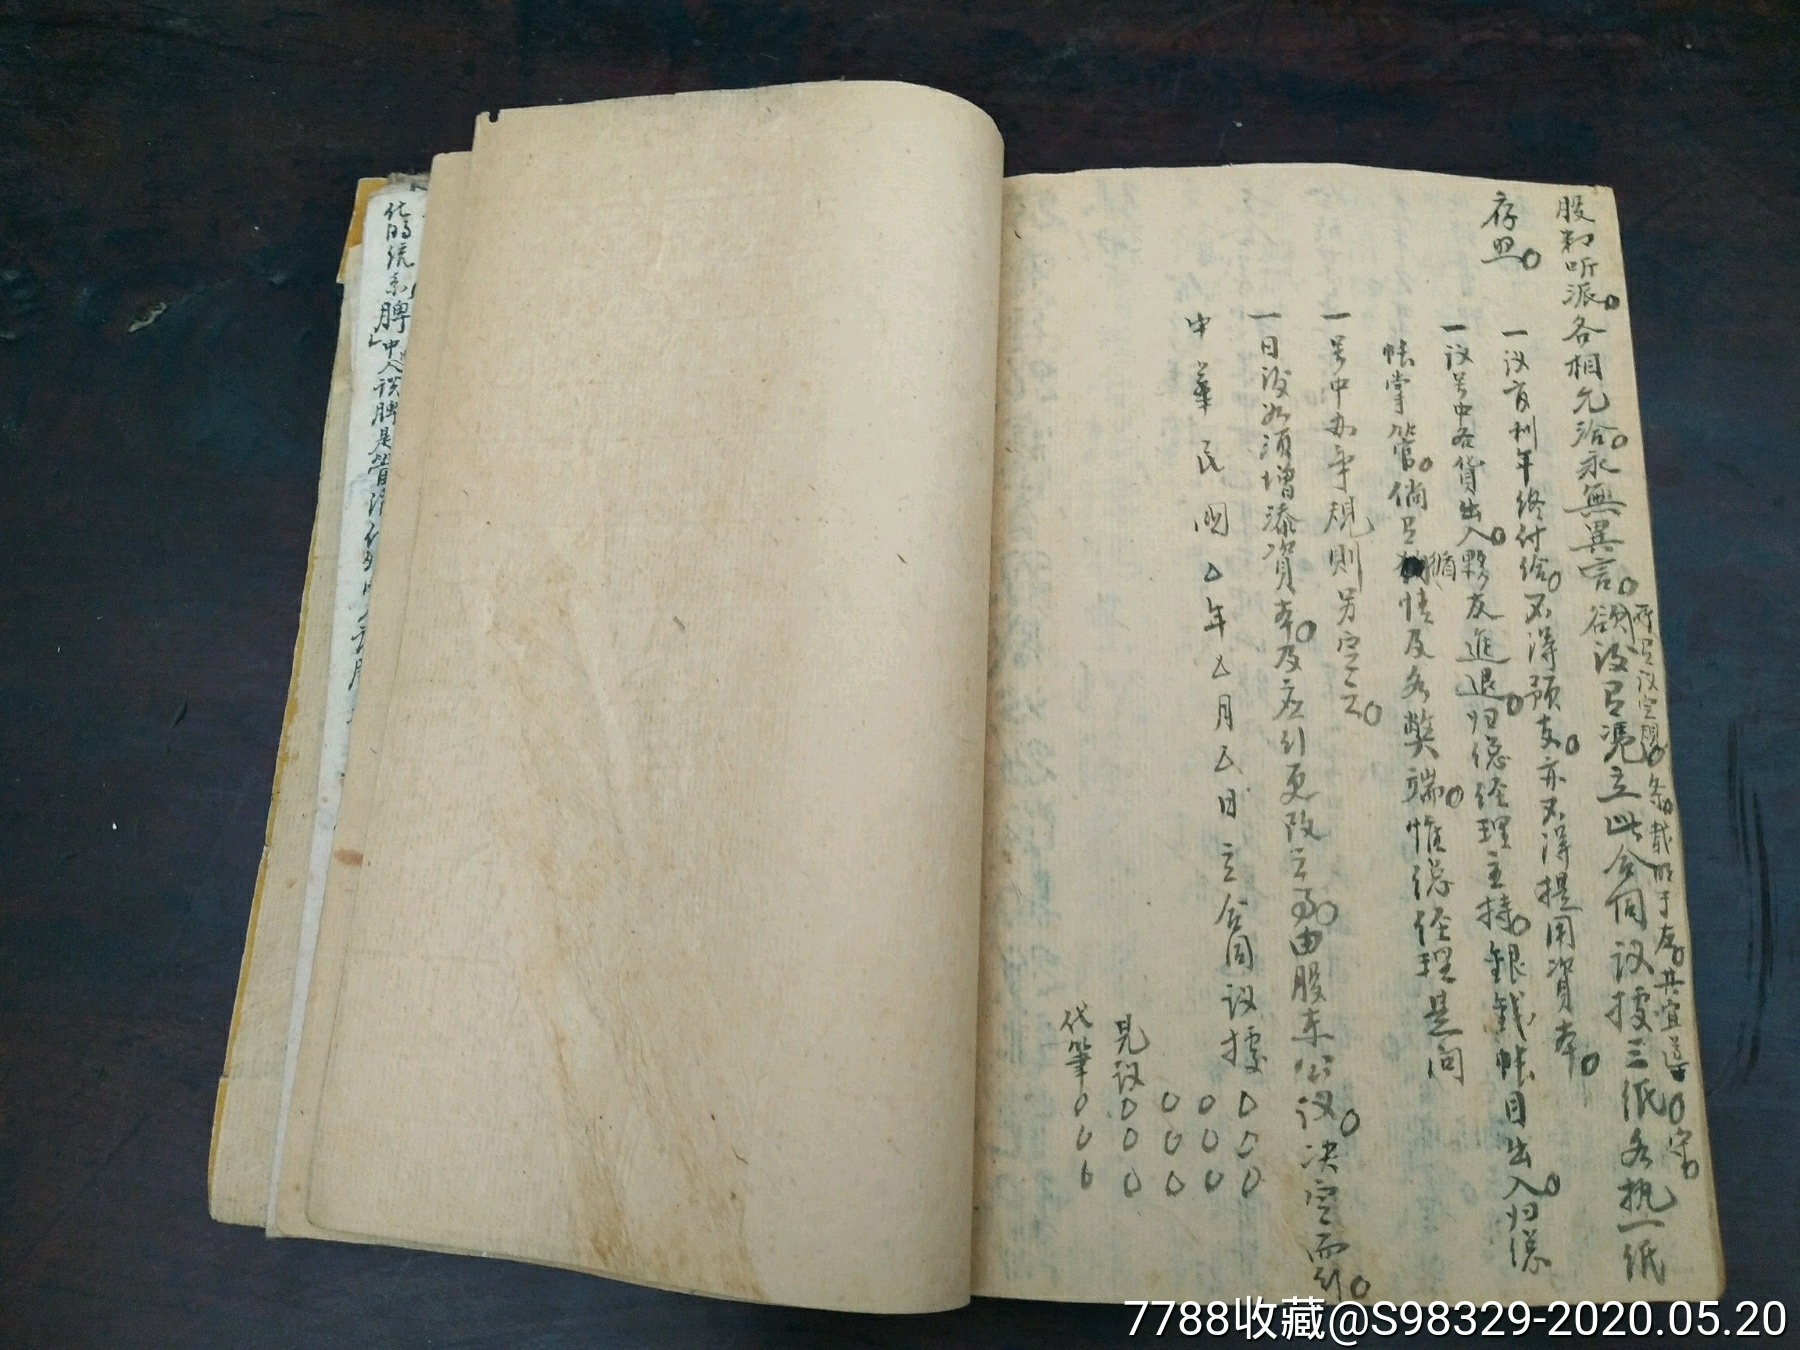 股勻听派各相允洽永無異言欲後有憑立此合同议據三紙各执一纸
所有议定規条载明于后共宜遵守
存照
一议官利年终付给不得预支亦不得提用资本
一议号中各货出入夥友進退归總经理主持銀錢帐目出入归總
帐掌管倘有循情及各弊端惟總经理是问
一号中办事規則另定之
一日後如须增添资本及应行更改之事由股东公议决定而行
中華民國 年 月 日立合同议據〇〇〇
〇〇〇
〇〇〇
見议〇〇〇
代筆〇〇〇
7788收藏@S98329-2020.05.20